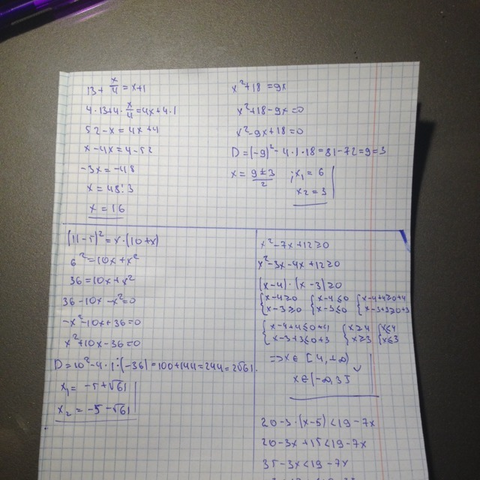 13 + x/4 = x+1
4·13+4·x/4=4x+4·1
52-x=4x+4
x-4x=4-52
-3x=-48
x=48:3
x=16
x²+18=9x
x²+18-9x=0
x²-9x+18=0
D=(-9)²-4·1·18=81-72=9=3
x=9±3/2 ; x₁=6
x₂=3
(11-5)²=x·(10+x)
6²=10x+x²
36=10x+x²
36-10x-x²=0
-x²-10x+36=0
x²+10x-36=0
D=10²-4·1·(-36)=100+144=244=2√61
x₁=-5+√61
x₂=-5-√61
x²-7x+12≥0
x²-3x-4x+12≥0
(x-4)·(x-3)≥0
{x-4≥0 {x-4≤0 {x-4+4≥0+4
{x-3≥0 {x-3≤0 {x-3+3≥0+3
{x-4+4≤0+4 {x≥4 {x≤4
{x-3+3≤0+3 {x≥3 {x≤3
=>x∈[4,+∞)
x∈(-∞,3]
20-3·(x-5)<19-7x
20-3x+15<19-7x
35-3x<19-7x